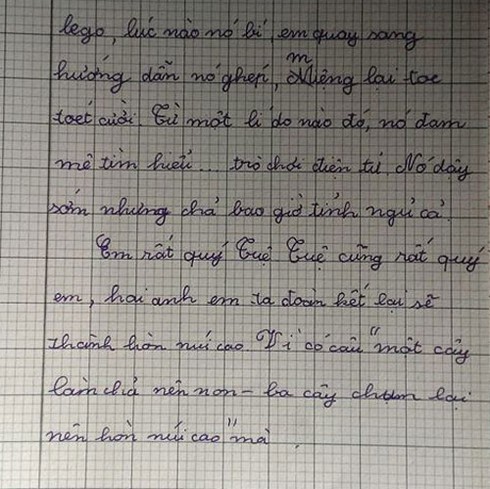 lego, lúc nào nó bí, em quay sang
hướng dẫn nó ghép, miệng lại toe
toét cười. Từ một lí do nào đó, nó đam
mê tìm hiểu... trò chơi điện tử. Nó dậy
sớm nhưng chả bao giờ tỉnh ngủ cả.
Em rất quý Tuệ. Tuệ cũng rất quý
em, hai anh em ta đoàn kết lại sẽ
thành hòn núi cao. Vì có câu "một cây
làm chả nên non - ba cây chụm lại
nên hòn núi cao" mà.